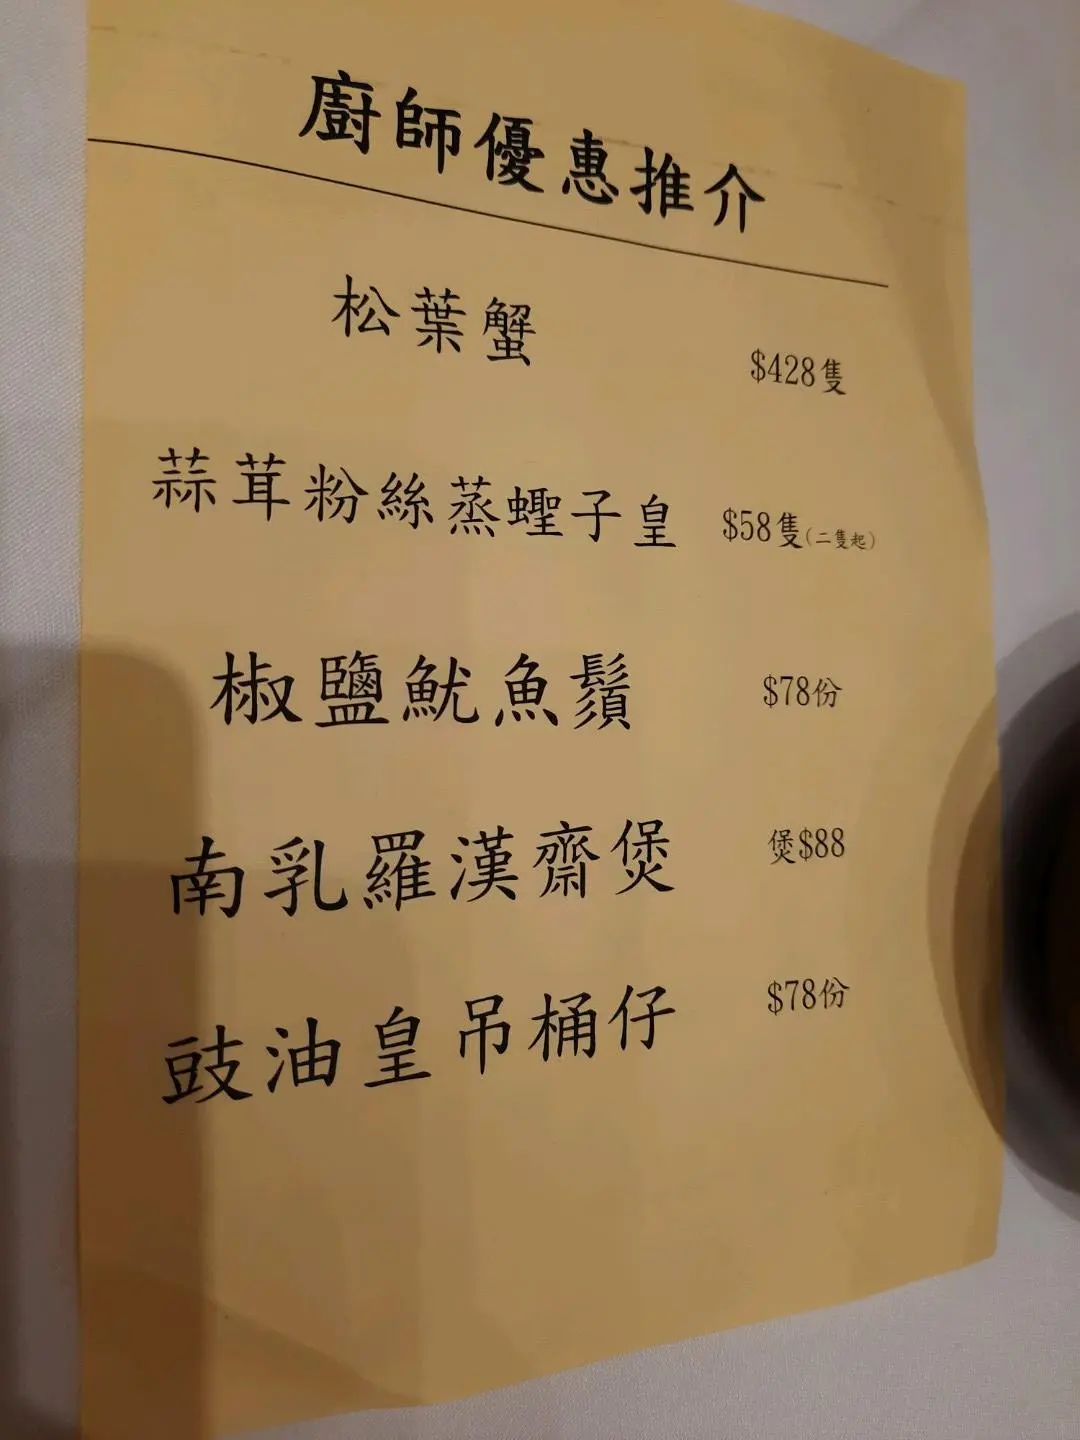 廚師優惠推介
松葉蟹 $428隻
蒜茸粉絲蒸蟶子皇 $58隻(二隻起)
椒鹽魷魚鬚 $78份
南乳羅漢齋煲 煲$88
豉油皇吊桶仔 $78份